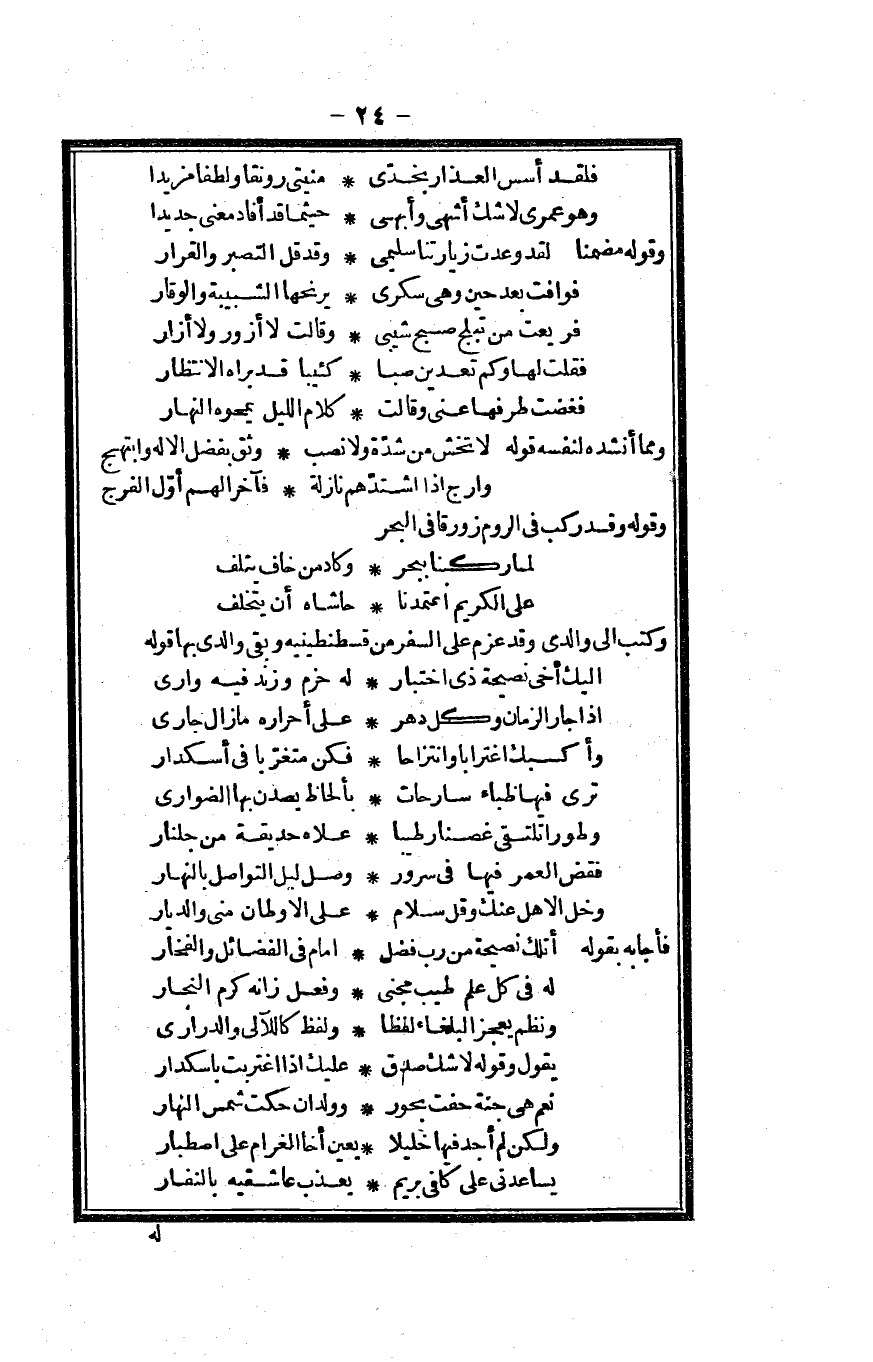 - ٢٤ -
فلقد أسس العذار بخدّى * منيتى رونقا ولطفا مزيدا
وهو عمرى لاشك أشهى وأبهى * حيثما قد أفاد معنى جديدا
وقوله مضمنا لقد وعدت زيارتنا سليمى * وقد قل التصبر والقرار
فوافت بعد حين وهى سكرى * يرنحها الشبيبة والوقار
فريعت من تبلج صبح شيبى * وقالت لا أزور ولا أزار
فقلت لها وكم تعدين صبا * كئيبا قد براه الانتظار
فغضت طرفها عنى وقالت * كلام الليل يمحوه النهار
ومما أنشده لنفسه قوله لا تخش من شدّة ولا نصب * وثق بفضل الاله وابتهج
وارج اذا اشتدّ هم نازلة * فآخر الهم أوّل الفرج
وقوله وقد ركب فى الروم زورقا فى البحر
لما ركبنا ببحر * وكاد من خاف يتلف
على الكريم اعتمدنا * حاشاه أن يتخلف
وكتب الى والدى وقد عزم على السفر من قسطنطينيه وبقى والدى بها قوله
اليك أخى نصيحة ذى اختبار * له حزم وزند فيه وارى
اذا جار الزمان وكل دهر * على أحراره مازال جارى
وأكسبك اغترابا وانتزاحا * فكن متغرّبا فى أسكدار
ترى فيها ظباء سارحات * بألحاظ يصدن بها الضوارى
وطورا تلتقى غصنا رطيبا * علاه حديقة من جلنار
فقض العمر فيها فى سرور * وصل ليل التواصل بالنهار
وخل الاهل عنك وقل سلام * على الاوطان منى والديار
فأجابه بقوله أتتك نصيحة من رب فضل * امام فى الفضائل والفخار
له فى كل علم طيب مجنى * وفعل زانه كرم النجار
ونظم يعجز البلغاء لفظا * ولفظ كاللآلى والدرارى
يقول وقوله لاشك صدق * عليك اذا اغتربت باسكدار
نعم هى جنة حفت بحور * وولدان حكت شمس النهار
ولكن لم أجد فيها خليلا * يعين أخا الغرام على اصطبار
يساعدنى على كلفى بريم * يعذب عاشقيه بالنفار
له